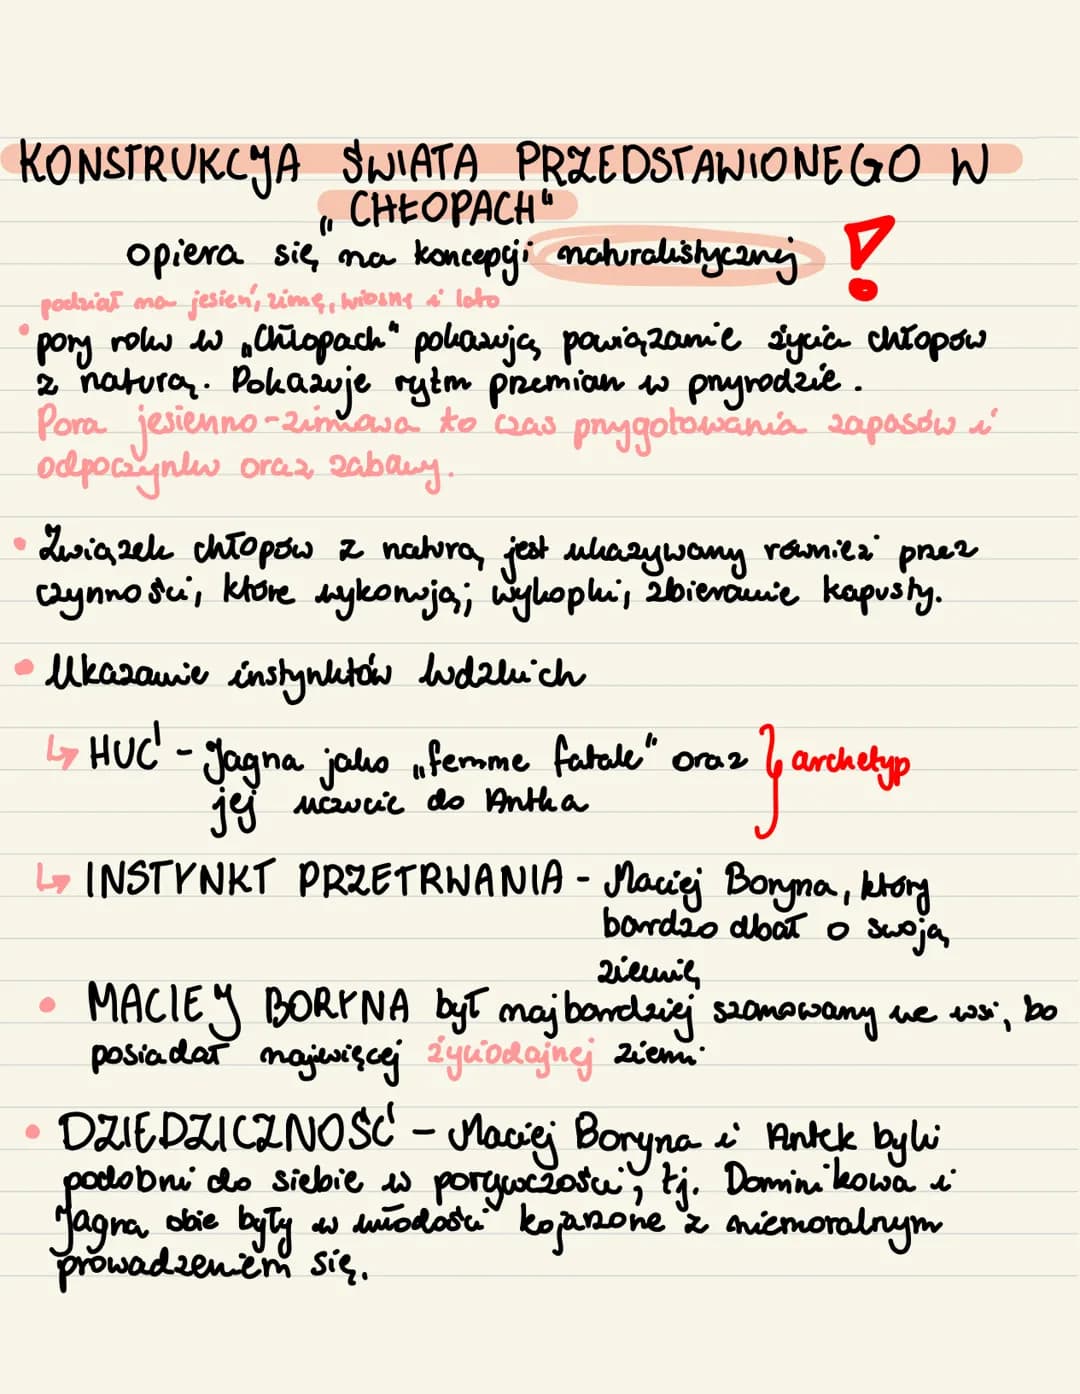 KONSTRUKCJA ŚWIATA PRZEDSTAWIONEGO W
„CHŁOPACH"
opiera się na koncepcji naturalistycznej !
podział na jesień, zimę, wiosnę i lato
• pory roku w „Chłopach" pokazują powiązanie życia chłopów
z naturą. Pokazuje rytm przemian w przyrodzie.
Pora jesienno-zimowa to czas przygotowania zapasów i
odpoczynku oraz zabawy.
• Związek chłopów z naturą jest ukazywany również przez
czynności, które wykonują; wykopki, zbieranie kapusty.
• Ukazanie instynktów ludzkich
↳ HUĆ - Jagna jako „femme fatale" oraz } archetyp
jej uczucie do Antka
↳ INSTYNKT PRZETRWANIA - Maciej Boryna, który
bardzo dbał o swoją
ziemię
• MACIEJ BORYNA był najbardziej szanowany we wsi, bo
posiadał najwięcej życiodajnej ziemi
• DZIEDZICZNOŚĆ - Maciej Boryna i Antek byli
podobni do siebie w porywczości, tj. Dominikowa i
Jagna obie były w młodości kojarzone z niemoralnym
prowadzeniem się.